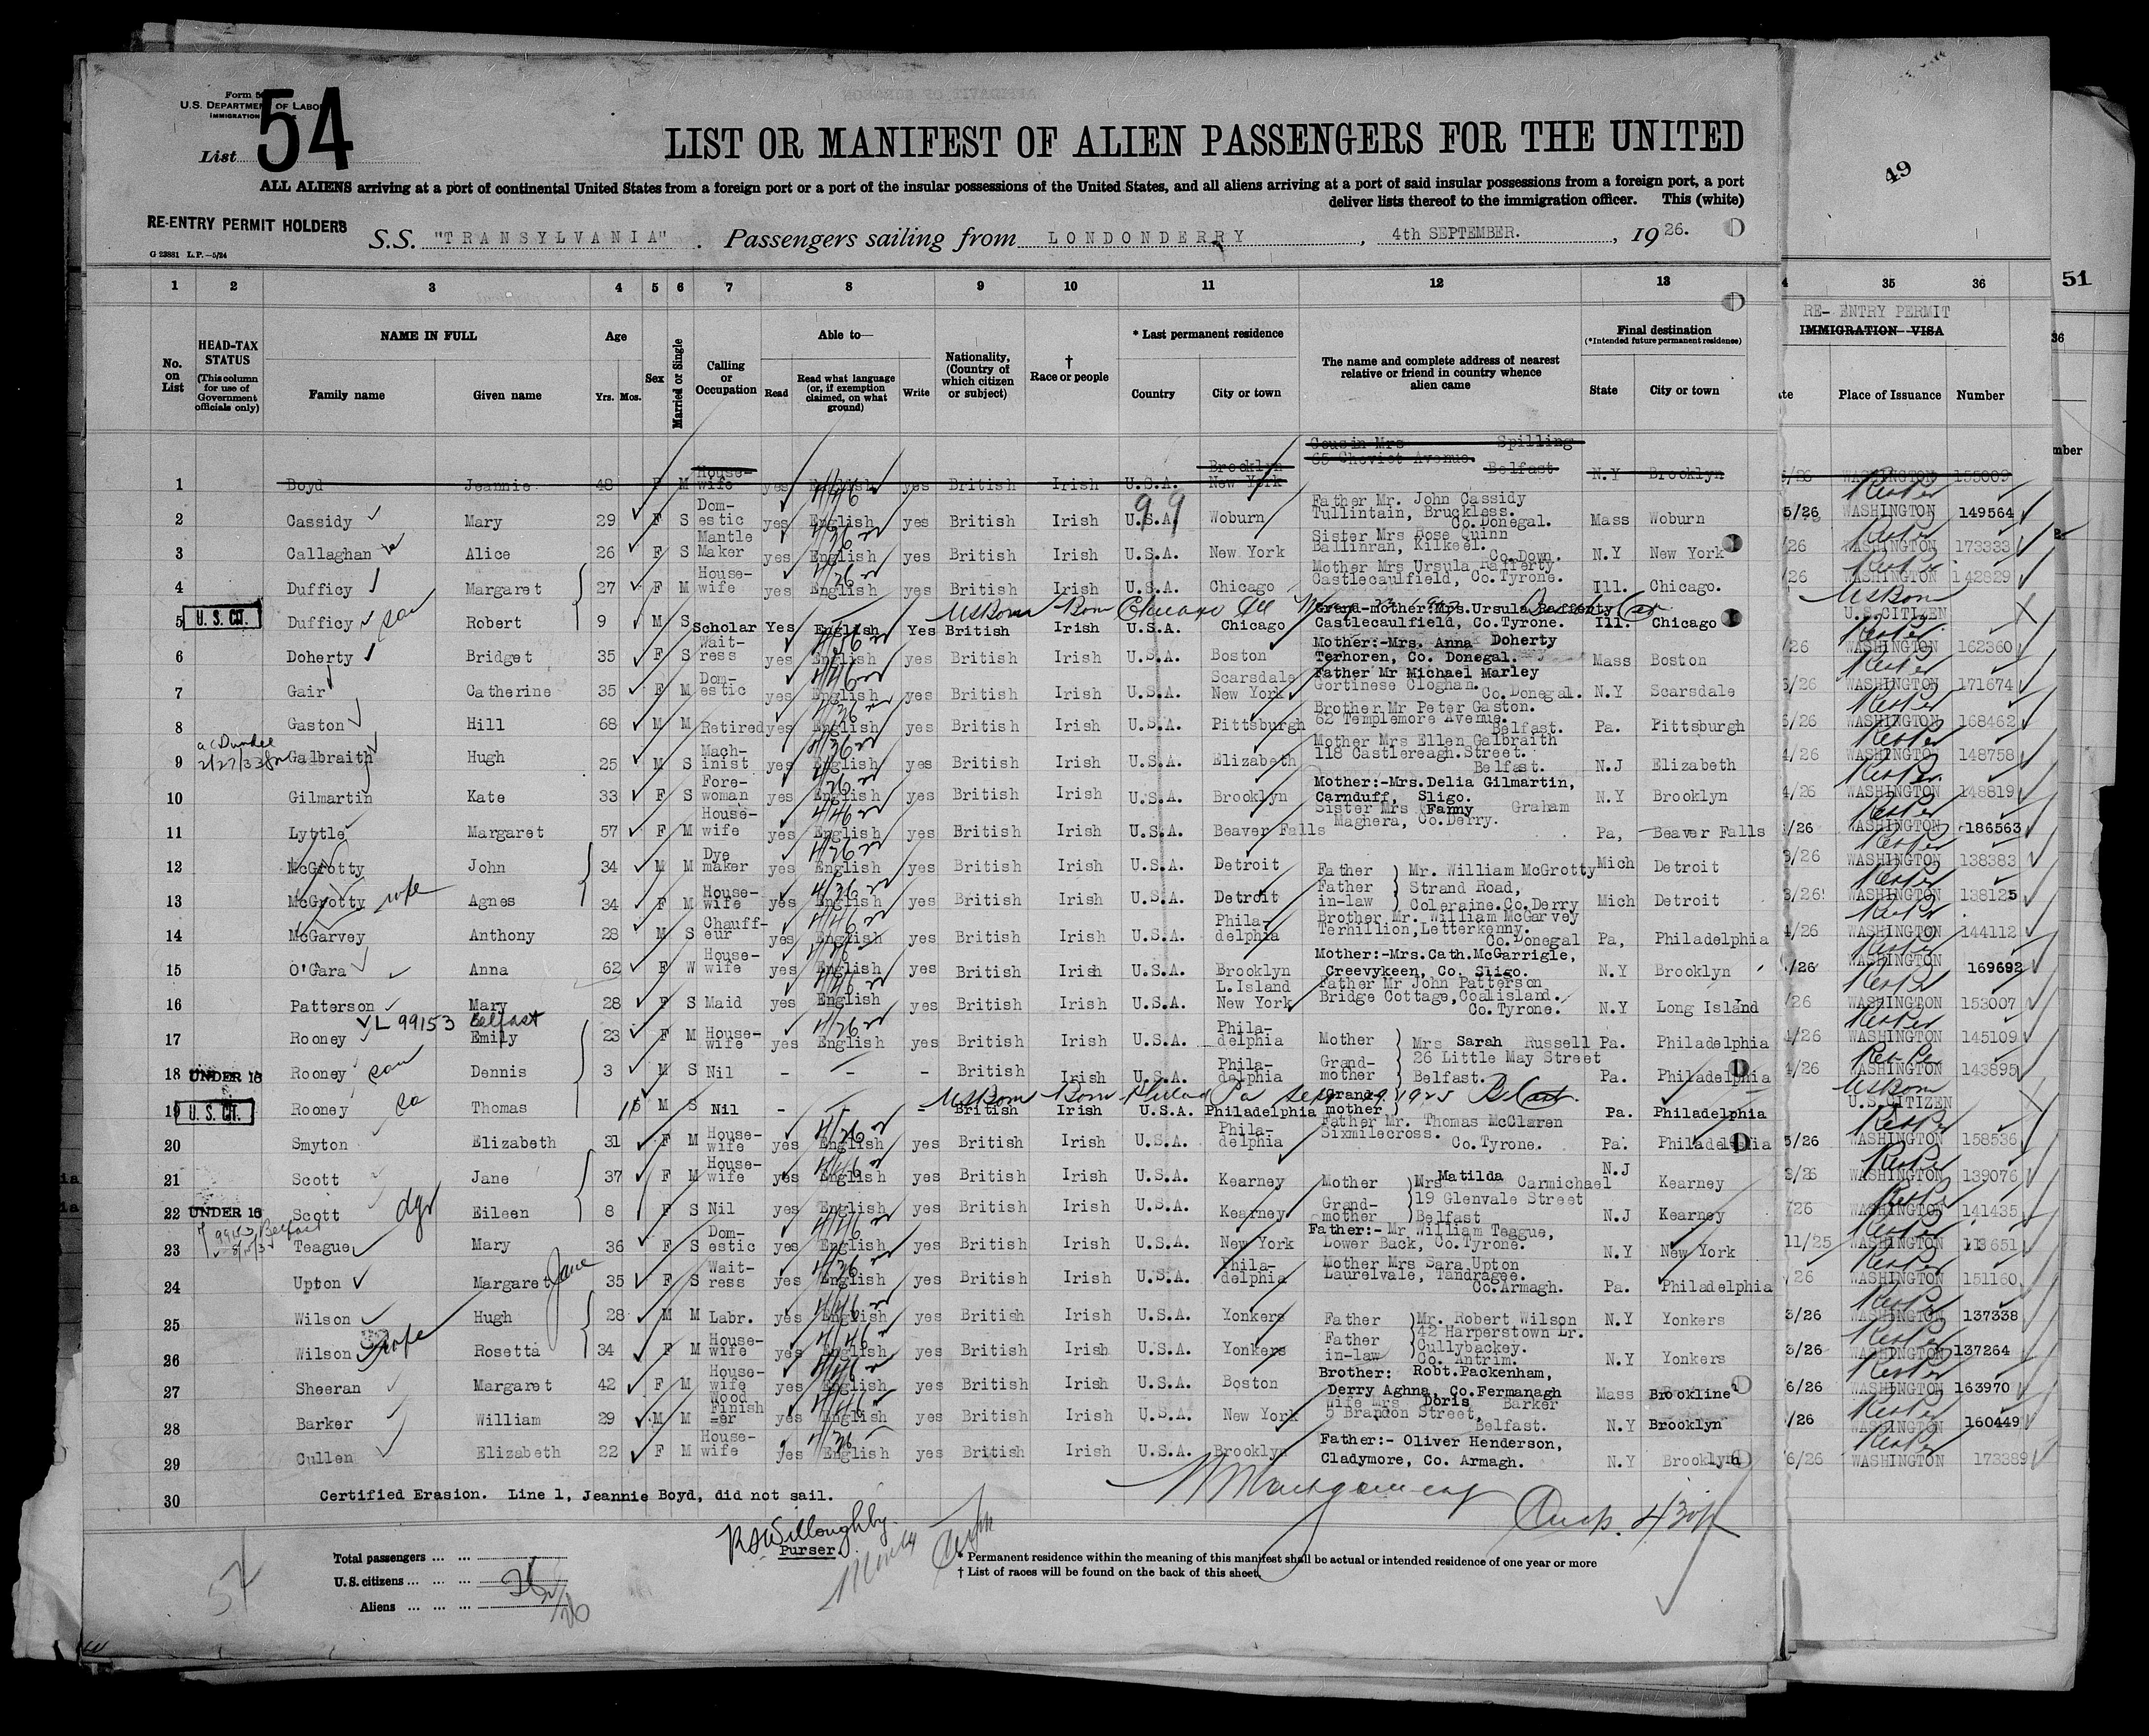 Form 5
U.S. DEPARTMENT OF LABOR
IMMIGRATION
List 54
LIST OR MANIFEST OF ALIEN PASSENGERS FOR THE UNITED
ALL ALIENS arriving at a port of continental United States from a foreign port or a port of the insular possessions of the United States, and all aliens arriving at a port of said insular possessions from a foreign port, a port
deliver lists thereof to the immigration officer. This (white)
49
RE-ENTRY PERMIT HOLDERS
S.S. "TRANSYLVANIA" . Passengers sailing from LONDONDERRY , 4th SEPTEMBER. , 1926.
G 23881 L.P.—5/24
1 2 3 4 5 6 7 8 9 10 11 12 13 4 35 36 51
RE-ENTRY PERMIT
IMMIGRATION VISA
No. on List
HEAD-TAX STATUS
(This column for use of Government officials only)
NAME IN FULL
Family name Given name
Age
Yrs. Mos.
Sex
Married or Single
Calling or Occupation
Able to—
Read
Read what language (or, if exemption claimed, on what ground)
Write
Nationality, (Country of which citizen or subject)
† Race or people
* Last permanent residence
Country City or town
The name and complete address of nearest relative or friend in country whence alien came
Final destination
(*Intended future permanent residence)
State City or town
te Place of Issuance Number
36
mber
1 Boyd Jeannie 48 F M House-wife yes English yes British Irish U.S.A. Brooklyn New York Cousin Mrs Spilling 65 Cheviot Avenue. Belfast N.Y Brooklyn 5/26 WASHINGTON 153009
2 Cassidy Mary 29 F S Dom-estic yes English yes British Irish U.S.A. Woburn Father Mr. John Cassidy Tullintain, Bruckless. Co.Donegal. Mass Woburn 5/26 WASHINGTON 149564
3 Callaghan Alice 26 F S Mantle Maker yes English yes British Irish U.S.A. New York Sister Mrs Rose Quinn Ballinran, Kilkeel. Co.Down. N.Y New York /26 WASHINGTON 173333
4 Dufficy Margaret 27 F M House-wife yes English yes British Irish U.S.A. Chicago Mother Mrs Ursula Rafferty Castlecaulfield, Co.Tyrone. Ill. Chicago. /26 WASHINGTON 142829
US Born Born Chicago Ill
5 U.S. CIT. Dufficy son Robert 9 M S Scholar Yes English Yes British Irish U.S.A. Chicago Grand-mother:Mrs.Ursula Rafferty Castlecaulfield, Co.Tyrone. Ill. Chicago US Born U.S.CITIZEN
6 Doherty Bridget 35 F S Wait-ress yes English yes British Irish U.S.A. Boston Mother:-Mrs. Anna Doherty Terhoren, Co. Donegal. Mass Boston /26 WASHINGTON 162360
7 Gair Catherine 35 F M Dom-estic yes English yes British Irish U.S.A. Scarsdale New York Father Mr Michael Marley Gortinese Cloghan. Co.Donegal. N.Y Scarsdale 5/26 WASHINGTON 171674
8 Gaston Hill 68 M M Retired yes English yes British Irish U.S.A. Pittsburgh Brother Mr Peter Gaston. 62 Templemore Avenue. Belfast. Pa. Pittsburgh 5/26 WASHINGTON 168462
9 2/27/33 Galbraith Hugh 25 M S Mach-inist yes English yes British Irish U.S.A. Elizabeth Mother Mrs Ellen Galbraith 118 Castlereagh.Street. Belfast. N.J Elizabeth 4/26 WASHINGTON 148758
10 Gilmartin Kate 33 F S Fore-woman yes English yes British Irish U.S.A. Brooklyn Mother:-Mrs.Delia Gilmartin, Carnduff, Sligo. N.Y Brooklyn 4/26 WASHINGTON 148819
11 Lyttle Margaret 57 F M House-wife yes English yes British Irish U.S.A. Beaver Falls Sister Mrs Fanny Graham Maghera, Co.Derry. Pa, Beaver Falls /26 WASHINGTON 186563
12 McGrotty John 34 M M Dye maker yes English yes British Irish U.S.A. Detroit Father Mr. William McGrotty Mich Detroit 3/26 WASHINGTON 138383
13 McGrotty wife Agnes 34 F M House-wife yes English yes British Irish U.S.A. Detroit Father in-law Strand Road, Coleraine.Co.Derry Mich Detroit 3/26 WASHINGTON 138125
14 McGarvey Anthony 28 M S Chauff-eur yes English yes British Irish U.S.A. Phila-delphia Brother Mr. William McGarvey Terhillion,Letterkenny. Co.Donegal Pa, Philadelphia 4/26 WASHINGTON 144112
15 O'Gara Anna 62 F W House-wife yes English yes British Irish U.S.A. Brooklyn Mother:-Mrs.Cath.McGarrigle, Creevykeen, Co. Sligo. N.Y Brooklyn /26 WASHINGTON 169692
16 Patterson Mary 28 F S Maid yes English yes British Irish U.S.A. L.Island New York Father Mr John Patterson Bridge Cottage,Coalisland. Co.Tyrone. N.Y Long Island /26 WASHINGTON 153007
VL 99153 Belfast
17 Rooney Emily 23 F M House-wife yes English yes British Irish U.S.A. Phila-delphia Mother Mrs Sarah Russell Pa. Philadelphia 4/26 WASHINGTON 145109
18 UNDER 16 Rooney son Dennis 3 M S Nil - - - British Irish U.S.A. Phila-delphia Grand-mother 26 Little May Street Belfast. Pa. Philadelphia 4/26 WASHINGTON 143895
US Born Born Philad Pa 1925
19 U.S. CIT. Rooney Thomas M S Nil - - - British Irish U.S.A. Philadelphia Grand-mother Pa. Philadelphia US Born U.S.CITIZEN
20 Smyton Elizabeth 31 F M House-wife yes English yes British Irish U.S.A. Phila-delphia Father Mr. Thomas McClaren Sixmilecross. Co.Tyrone. Pa. Philadelphia 5/26 WASHINGTON 158536
21 Scott Jane 37 F M House-wife yes English yes British Irish U.S.A. Kearney Mother Mrs Matilda Carmichael N.J Kearney 3/26 WASHINGTON 139076
22 UNDER 16 Scott dgr Eileen 8 F S Nil yes English yes British Irish U.S.A. Kearney Grand-mother 19 Glenvale Street Belfast N.J Kearney /26 WASHINGTON 141435
99153 Belfast
23 Teague Mary 36 F S Dom-estic yes English yes British Irish U.S.A. New York Father:- Mr William Teague, Lower Back, Co.Tyrone. N.Y New York 11/25 WASHINGTON 113651
24 Upton Margaret Jane 35 F S Wait-ress yes English yes British Irish U.S.A. Phila-delphia Mother Mrs Sara Upton Laurelvale, Tandragee. Co.Armagh. Pa. Philadelphia /26 WASHINGTON 151160
25 Wilson Hugh 28 M M Labr. yes English yes British Irish U.S.A. Yonkers Father Mr. Robert Wilson N.Y Yonkers 3/26 WASHINGTON 137338
26 Wilson wife Rosetta 34 F M House-wife yes English yes British Irish U.S.A. Yonkers Father in-law 42 Harperstown Lr. Cullybackey. Co. Antrim. N.Y Yonkers 3/26 WASHINGTON 137264
27 Sheeran Margaret 42 F M House-wife yes English yes British Irish U.S.A. Boston Brother: Robt.Packenham, Derry Aghna, Co.Fermanagh Mass Brookline 6/26 WASHINGTON 163970
28 Barker William 29 M M Wood Finish-er yes English yes British Irish U.S.A. New York Wife Mrs Doris Barker 5 Brandon Street, Belfast. N.Y Brooklyn /26 WASHINGTON 160449
29 Cullen Elizabeth 22 F M House-wife yes English yes British Irish U.S.A. Brooklyn Father:- Oliver Henderson, Cladymore, Co. Armagh. N.Y Brooklyn 6/26 WASHINGTON 173389
30 Certified Erasion. Line 1, Jeannie Boyd, did not sail.
Willoughby
Purser
Total passengers ... ...
U.S. citizens ... ... ...
Aliens ... ... ...
* Permanent residence within the meaning of this manifest shall be actual or intended residence of one year or more
† List of races will be found on the back of this sheet.